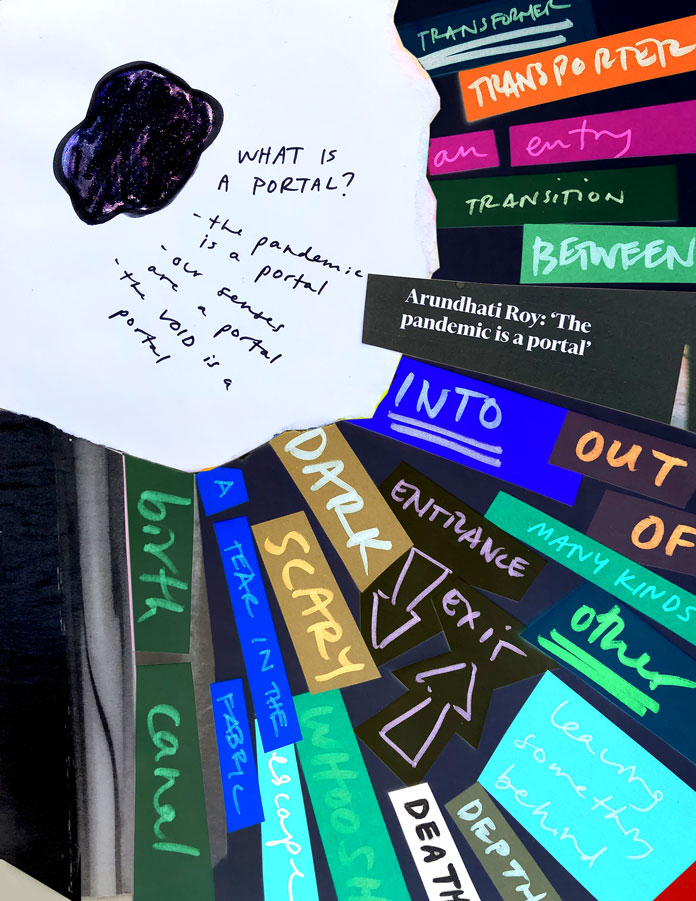 WHAT IS
A PORTAL?
- the pandemic
is a portal
- our senses
are a portal
- the VOID is a
portal
TRANSFORMER
TRANSPORTER
an entry
TRANSITION
BETWEEN
Arundhati Roy: ‘The
pandemic is a portal’
INTO
OUT
OF
DARK
ENTRANCE
MANY KINDS
EXIT
other
SCARY
A
TEAR IN THE
FABRIC
birth
canal
escape
WHOOSH
DEATH
DEPTH
leaving
something
behind